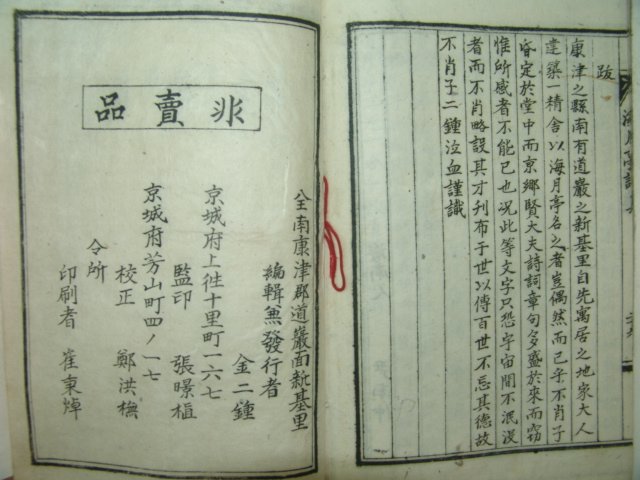 跋
康津之縣南有道巖之新基里自先寓居之地家大人
建築一精舍以海月亭名之者豈偶然而已乎不肖子
昏定於堂中而京鄉賢大夫詩詞章句多盛於來而窃
惟所感者不能已也况此等文字只恐宇宙間不泯没
者而不肖略設其才刊布于世以傳百世不忘其德故
不肖子二鍾泣血謹識
非賣品
全南康津郡道巖面新基里
編輯兼發行者 金二鍾
京城府上徃十里町一六七
監印 張暻植
京城府芳山町四ノ一七
校正 鄭洪橅
仝所
印刷者 崔東焯